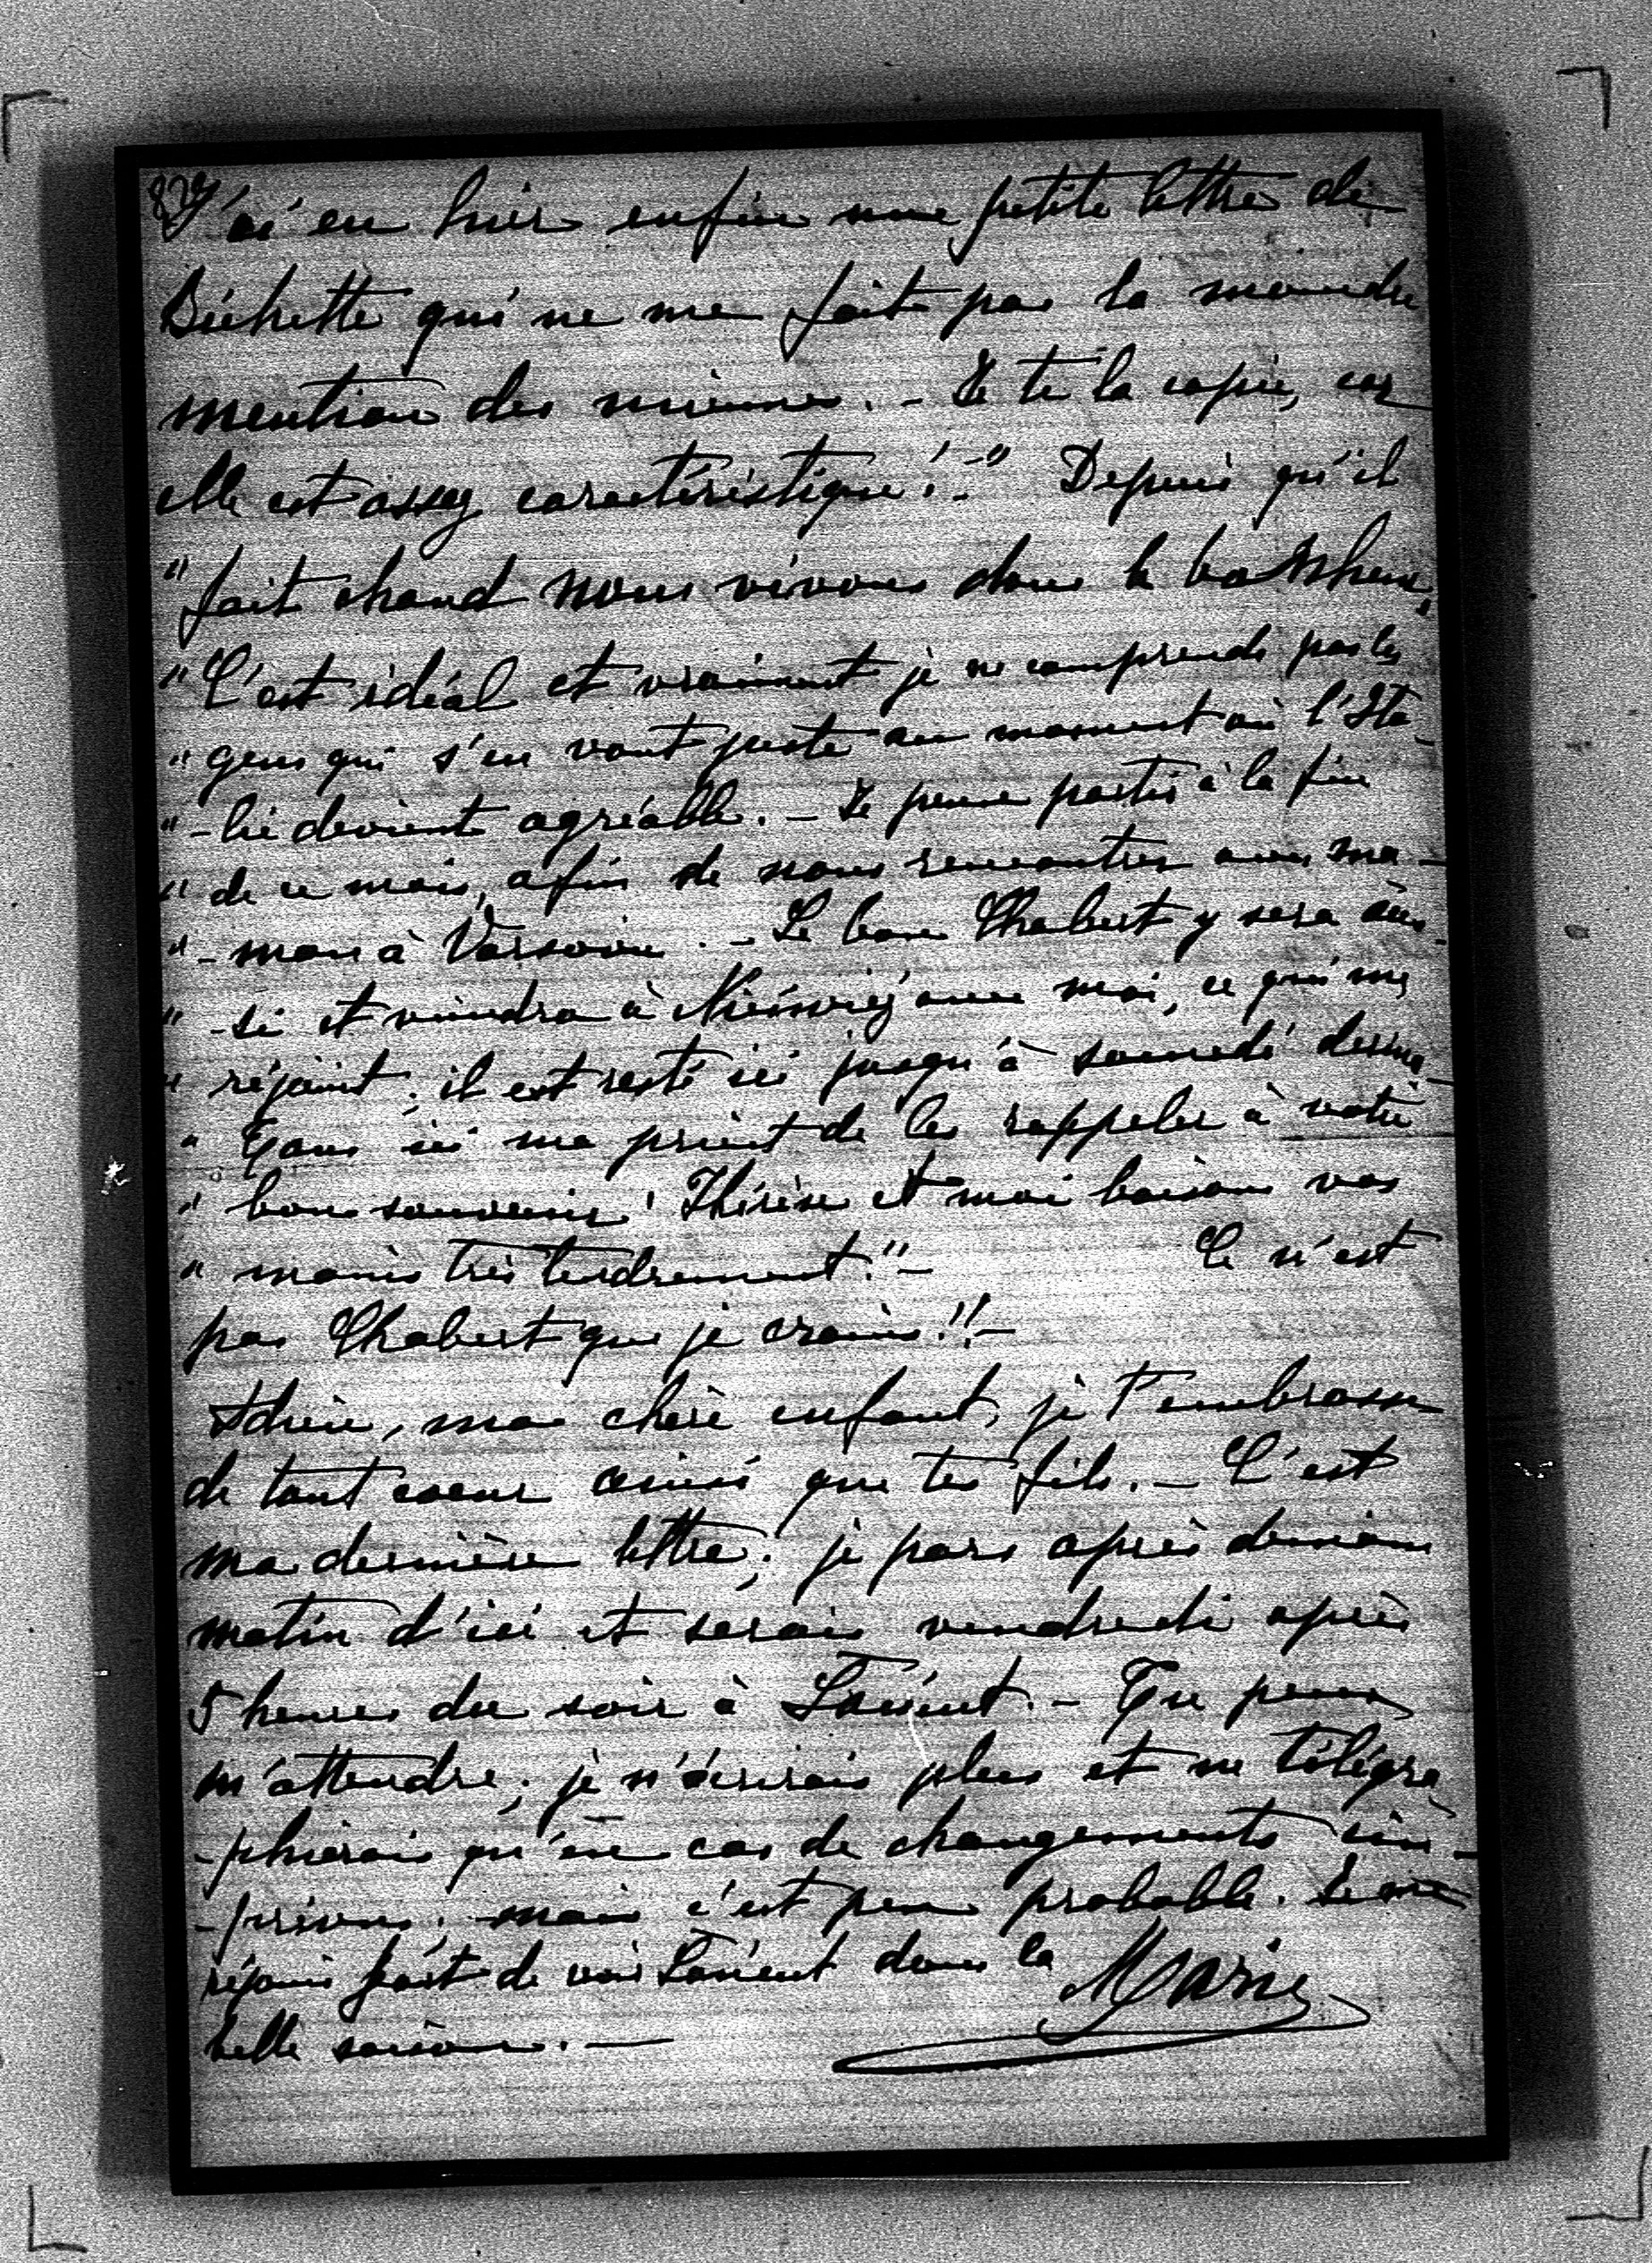 J'ai eu hier enfin une petite lettre de
Bichette qui ne me fait pas la moindre
mention des miennes. - Je te la copie, car
elle est assez caractéristique! - " Depuis qu'il
" fait chaud nous vivons dans le bonheur.
" C'est idéal et vraiment je ne comprends pas les
" gens qui s'en vont juste au moment où l'Ita-
" -lie devient agréable. - Je pense partir à la fin
" de ce mois, afin de nous rencontrer avec ma-
" -man à Varsovie. - Le bon Chabert y sera aus-
" -si et viendra à Nieśwież avec moi, ce qui me
" réjouit; il est resté ici jusqu'à samedi dernier
" Tous ici me prient de les rappeler à votre
" bon souvenir! Thérèse et moi baisons vos
" mains très tendrement." - Ce n'est
pas Chabert que je crains!! -
Adieu, ma chère enfant, je t'embrasse
de tout coeur ainsi que tes fils. - C'est
ma dernière lettre; je pars après demain
matin d'ici et serais vendredi après
5 heures du soir à Łańcut. - Tu peux
m'attendre; je n'écrirais plus et ne télégra
-phierais qu'en cas de changements im-
-prévus; mais c'est peu probable. Je me
réjouis de voir Łańcut dans la
belle saison. -
Marie